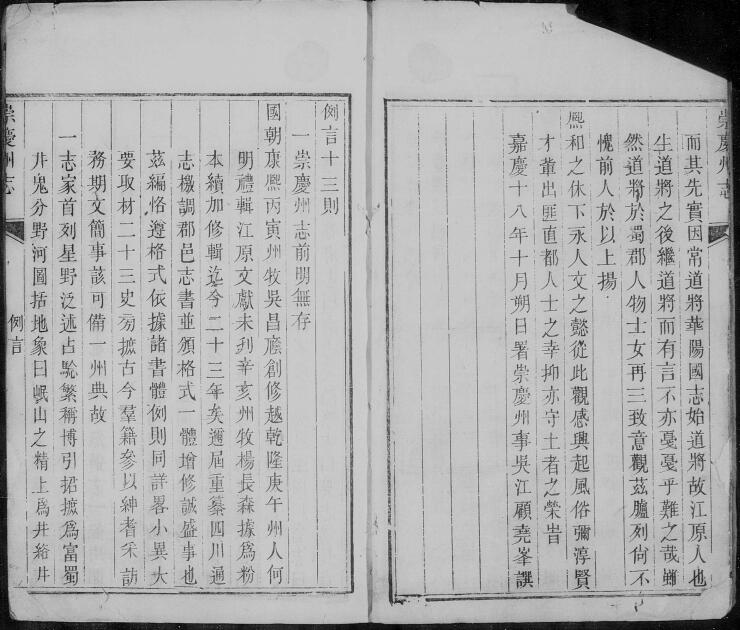 崇慶州志
而其先實因常道將華陽國志始道將故江原人也
生道將之後繼道將而有言不亦戞戞乎難之哉雖
然道將於蜀郡人物士女再三致意觀茲臚列尙不
愧前人於以上揚
熙和之休下永人文之懿從此觀感興起風俗彌淳賢
才輩出匪直都人士之幸抑亦守土者之榮旹
嘉慶十八年十月朔日署崇慶州事吳江顧堯峯譔
例言十三則
一崇慶州志前明無存
國朝康熙丙寅州牧吳昌廕創修越乾隆庚午州人何
明禮輯江原文獻未刋辛亥州牧楊長森據爲粉
本續加修輯迄今二十三年矣邇屆重纂四川通
志檄調郡邑志書並頒格式一體增修誠盛事也
茲編恪遵格式依據諸書體例則同詳畧小異大
要取材二十三史旁摭古今羣籍參以紳耆采訪
務期文簡事該可備一州典故
一志家首列星野泛述占驗繁稱博引掐摭爲富蜀
井鬼分野河圖括地象曰岷山之精上爲井絡井
崇慶州志
例言